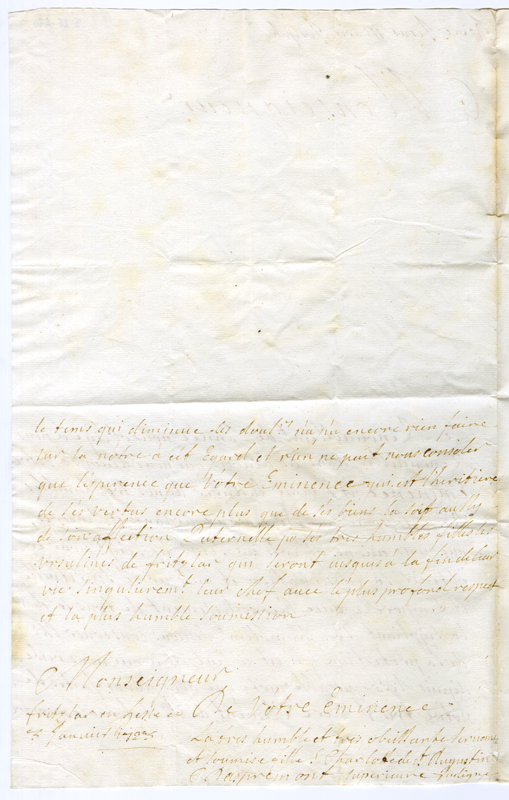 le tems qui diminue les doul.rs na pû encore rien faire
sur la notre a cet Egard et rien ne peut nous consoler
que l'esperence que Votre Eminence qui est l'heritiere
de ses vertus encore plus que de ses biens la soit aussy
de son affection Paternelle p. ses tres humbles filles les
vrsulines de fritzlar qui seront jusqu'a la fin de leur
vie singulierem.t leur chef avec le plus profond respect
et la plus humble soumission
Monseigneur
fritzlar en hesse ce De Votre Eminence
Janvier
La tres humble et tres obeissante servante
et soumise fille S. Charlotte de st Augustin
Daspremont superieure